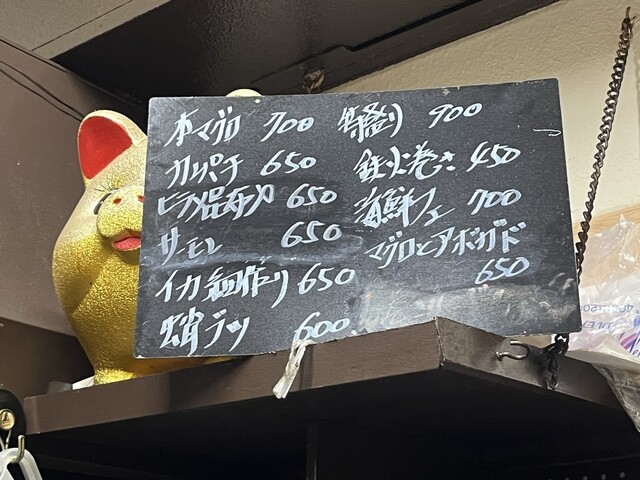 本マグロ 700
カンパチ 650
ヒラメ昆布〆 650
サーモン 650
イカ細作り 650
蛸ブツ 600
盛り 900
鉄火巻き 450
海鮮フェ 700
マグロとアボガド
650